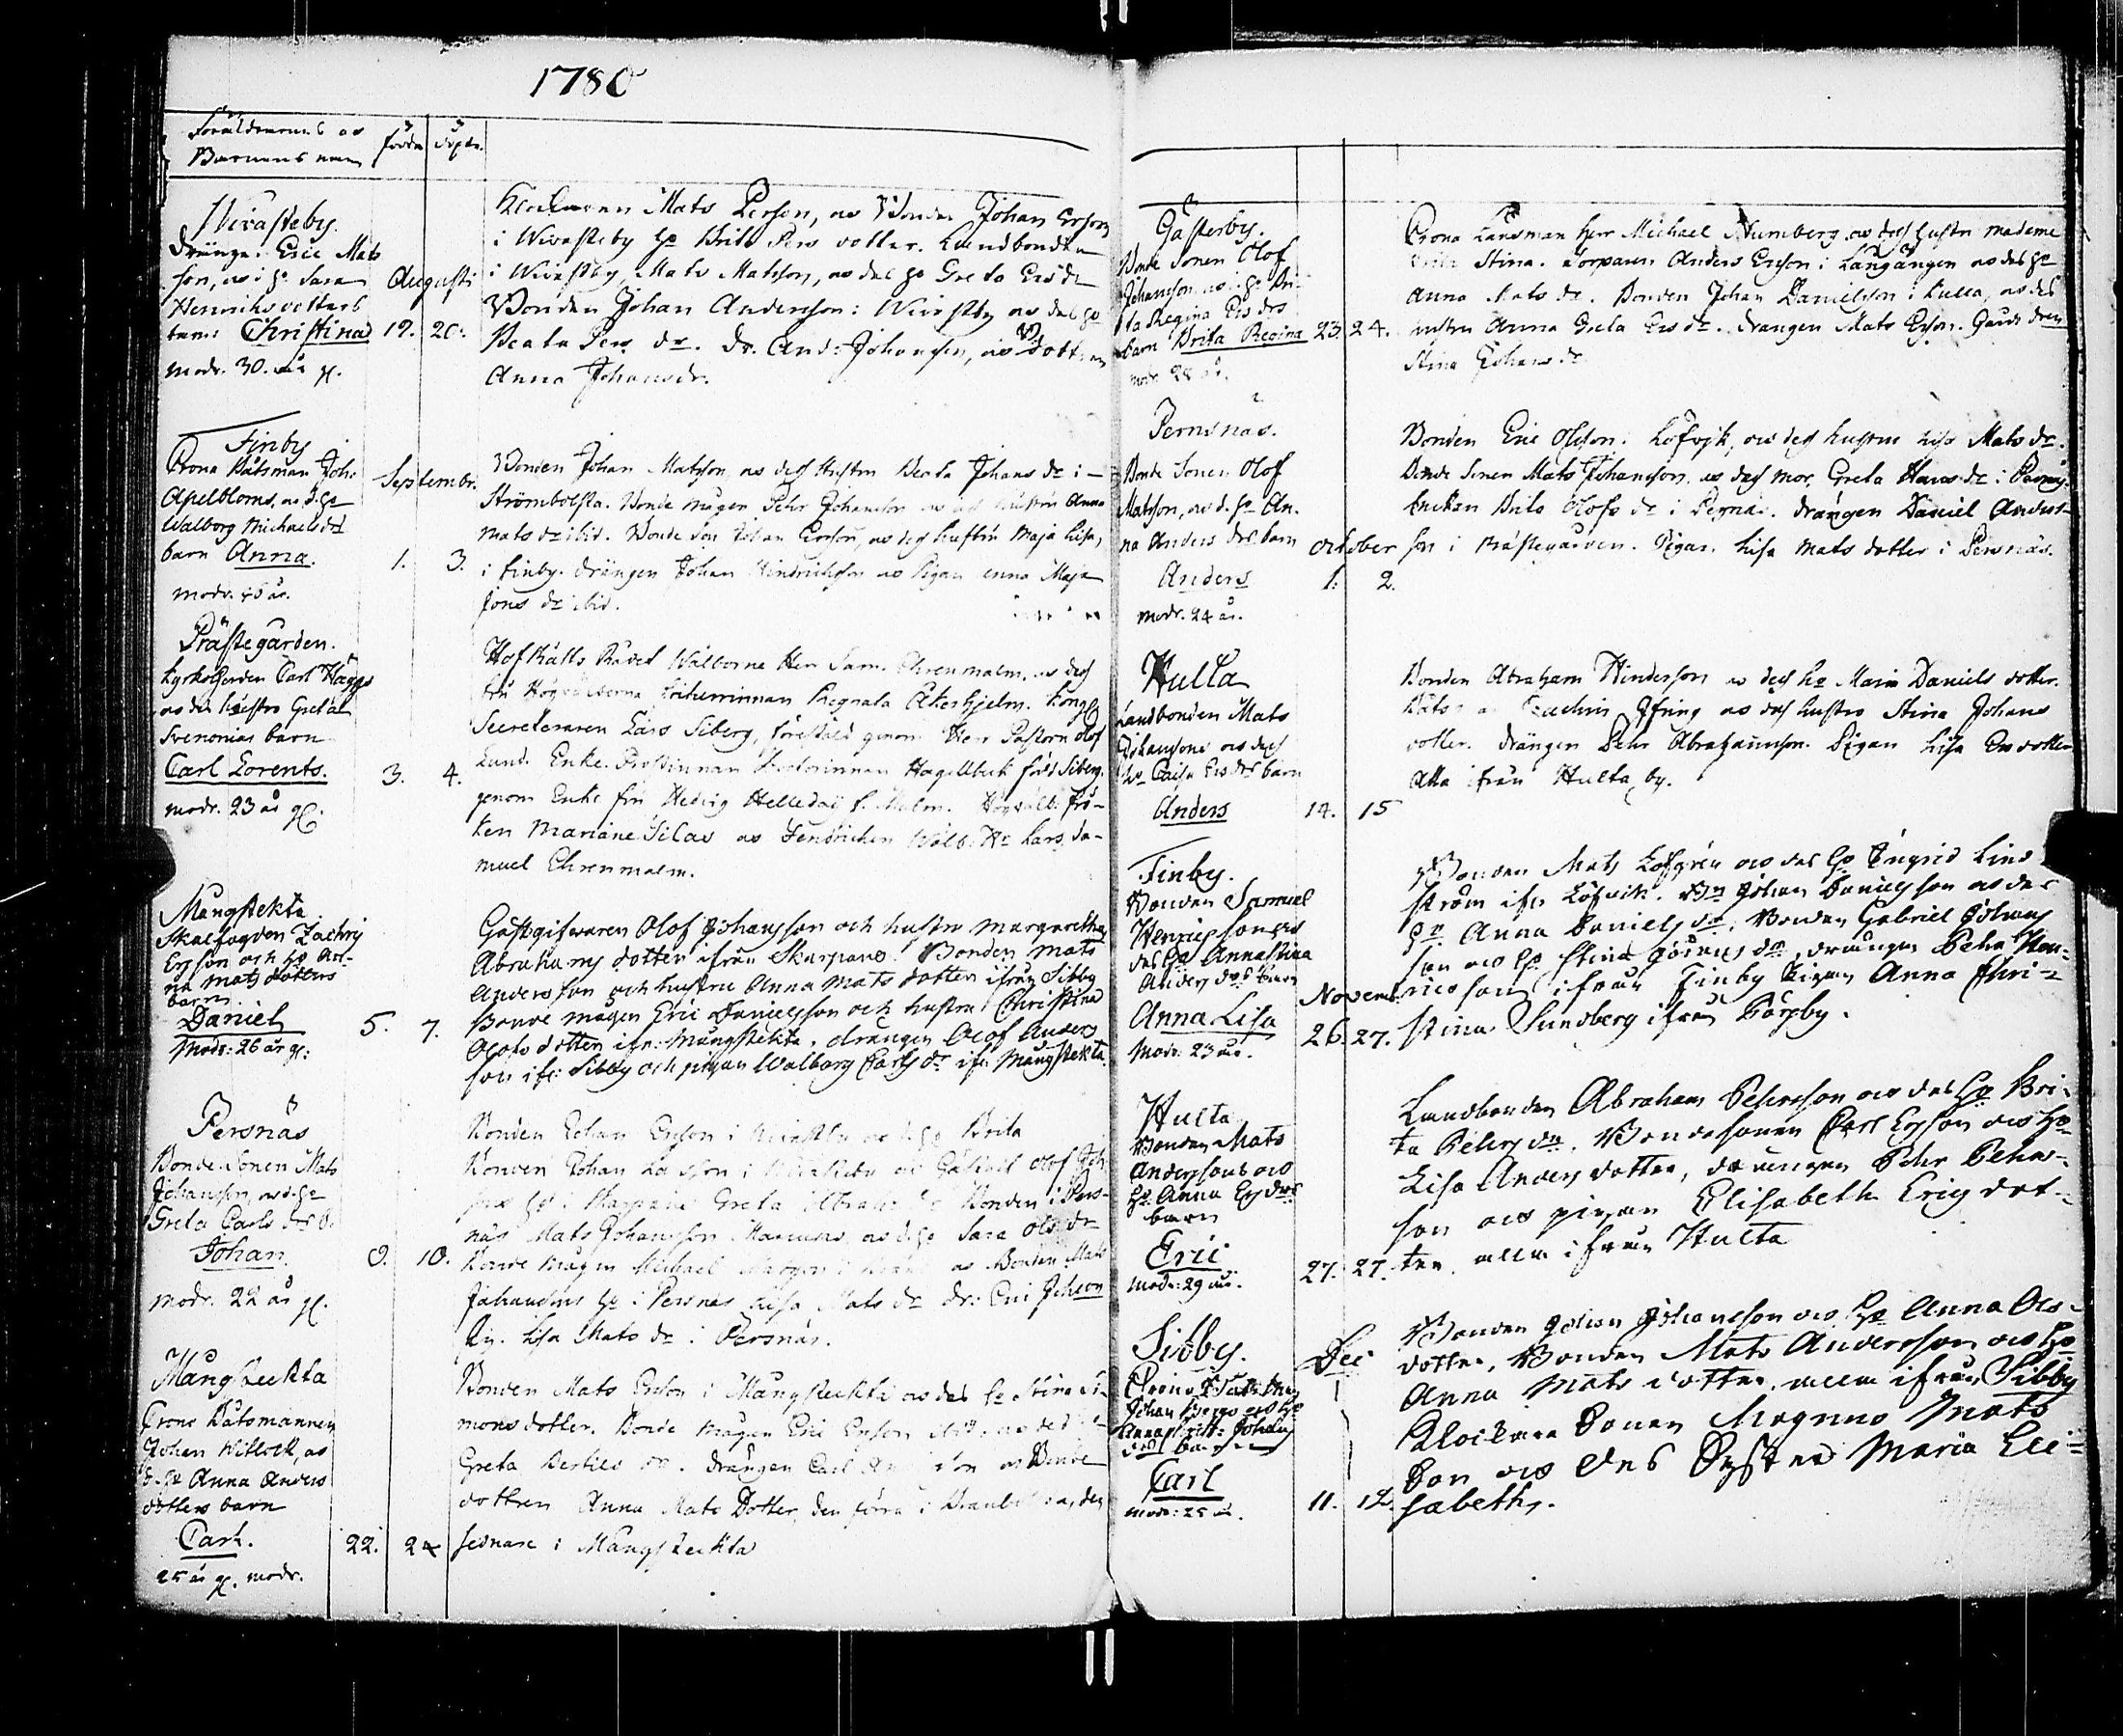 1780
Föräldrarnes as
Barnens namn
födde
döpte.
Wivasteby.
Drängen Eric Mats
son, as i h: Sara
Henriks dotters
barn: Christina
modr. 30. år gl.
Augusti
19. 20.
Mats Person, as Bonden Johan Erson
i Wivasteby h: Brita Pers dotter. Landbonden
i Wivasteby Mats Matsson, as des h: Greta Ers dr
Bonden Johan Anderson i Wivasteby as des h:
Beata Pers dr. Dr. And: Johanson, as dottren
Anna Johansdr.
Finby
Crono Båtsman Joh:
Apelbloms, as d. h:
Walborg Michaels dr
barn Anna.
Septembr.
1. 3.
Bonden Johan Matsson, as dess Hustru Beata Johans dr i
Strömbolsta. Bonde mågen Pehr Johanson as Hustru Anna
Mats dr ibid. Bonde Son Johan Erson, as dess hustru Maja Lisa,
i Finby. Drängen Johan Hindrichsson as Pigan Anna Maja
Jons dr ibid.
Prästegården.
Kyrkoherden Carl Häggs
as des hustru Greta
Svenonias barn
Carl Lorents.
modr. 23 år gl.
3. 4.
HofRätts Rådet Wälborne Herr Sam. Ehrenmalm, as dess
Fru Högvälborna Friherrinnan Regnata Åkerhjelm. Kongl.
Secreteraren Lars Siberg, förestäld genom Herr Pastorn Olof
Lund. Enke Prostinnan Hagelbeck född Siberg.
genom Enke fru Hedvig f. Malm. Högvälb. Frö-
ken Mariane Silas as Fendrichen Wälb. Hr Lars Sa-
muel Ehrenmalm.
Mångstekta
Skalfogden Zachris
Ersson och h: An-
na Mats dotters
barn.
Daniel
Modr: 26 år gl:
5. 7.
Gästgifvaren Olof Johansson och hustru Margaretha
Abrahams dotter ifrån Skarpans. Bonden Mats
Andersson och hustru Anna Mats dotter ifrån Sibby
Bonde mågen Eric Danielsson och hustru Christina
Olofs dotter ifr: Mångstekta, drängen Olof Anders
son ifr: Sibby och pigan Walborg Carls dr ifr: Mångstekta.
Persnäs
Bonde Sonen Mats
Johanson, as d. h:
Greta Carls drs b.
Johan.
modr. 22 år gl.
9. 10.
Bonden Johan Erson i as d. h: Brita
Bonden Johan Larsson i as Olof Joh
Greta Bonden i Pers-
näs Mats Johansson as d. h: Sara Ols dr
Bonde mågen Michael as Bonden Mats
Johansons h: i Persnäs Lisa Mats dr dr: Eric Johson
Pig. Lisa Mats dr i Persnäs.
Mångsteckta
Crono Båtsmannen
Johan Witlock, as
d. h: Anna Anders
dotters barn
Carl.
25 år gl. modr.
22. 24
Bonden Mats Erson i Mångsteckta as des h: Stina Si-
mons dotter. Bonde mågen Eric Erson ibid. as des h:
Greta Bertils dr. Drängen Carl as Bonde
dottren Anna Mats Dotter, den förra i den
sednare i Mångsteckta
Gästerby.
Bonde Sonen Olof
Johanson as i h: Bri-
ta Regina Ers drs
barn Brita Regina
modr. 28 år.
23. 24.
Crono Länsman Herr Michael Numberg as dess hustru madame
Stina. Torparen Anders Erson i Långängen as des h:
Anna Mats dr. Bonden Johan Danielson i Hulta, as des
hustru Anna Greta Ers dr. Drängen Mats Erson.
Stina Johans dr
Pernsnäs.
Bonde Sonen Olof
Matsson, as d. h: An-
na Anders drs barn
Anders
modr. 24 år.
October
1. 2.
Bonden Eric Olsson i Löfvik, as dess hustru Lisa Mats dr.
Bonde Sonen Mats Johanson, as dess mor, Greta Hans dr i Persnäs.
Enckan Brita Olofs dr i Persnäs. Drängen Daniel Anders-
son i Prästegården. Pigan Lisa Mats dotter i Persnäs.
Hulta
Landbonden Mats
Johansons as dess
h: Caisa Ers drs barn
Anders
14. 15
Bonden Abraham Hinderson as dess h: Maria Daniels dotter.
as des hustru Stina Johans
dotter. Drängen Pehr Abrahamson. Pigan Lisa Ers dotter
Alla ifrån Hulta by.
Finby.
Bonden Samuel
Henricssons as
des h: Anna Stina
Anders drs barn
Anna Lisa
Modr: 23 år.
Novemb.
26. 27.
Bonden Mats Löfgren as des h: Ingrid Lind
ström ifr: Löfvik. Bn Johan Danielsson as des
h: Anna Daniels dr. Bonden Gabriel Johans
son as h: Stina Görans dr, drängen Pehr Hen-
ricsson ifrån Finby Pigan Anna Chri-
stina Sundberg ifrån Kårsby.
Hulta
Bonden Mats
Anderssons as
h: Anna Ers drs
barn
Eric
modr: 29 år.
27. 27.
Landbonden Abraham Pehrsson as des h: Bri-
ta Peters dr. Bondesonen Carl Ersson as h:
Lisa Anders dotter, drängen Pehr Pehrs-
son as pigan Elisabeth Erics dot-
ter, alla ifrån Hulta
Sibby.
Crono Båtsman
Johan Bergs as h:
Anna Christ: Johans
drs barn
Carl
modr: 25 år.
Dec
11. 12.
Bonden Johan Johansson as h: Anna Ols-
dotter, Bonden Mats Andersson as h:
Anna Mats dotter, alla ifrån Sibby
Klockare Sonen Magnus Mats
Son as Des Syster Maria Eli-
sabeth.